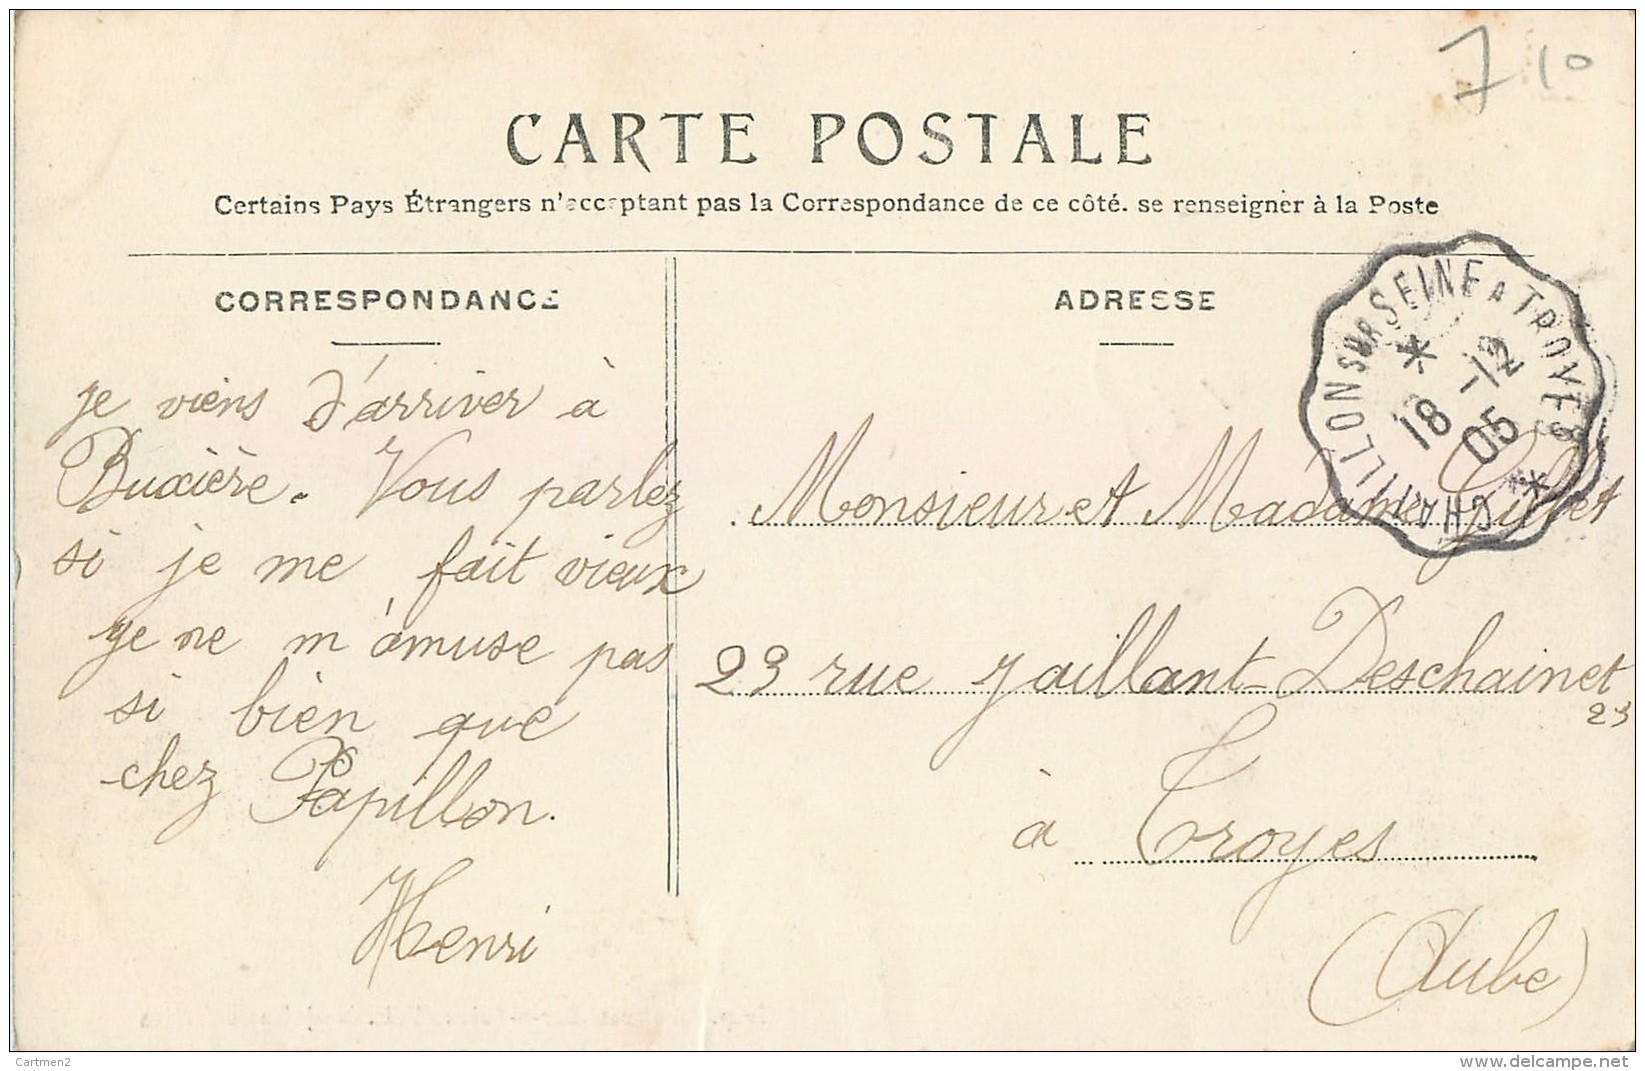 7 10
CARTE POSTALE
Certains Pays Étrangers n'acceptant pas la Correspondance de ce côté. se renseigner à la Poste
CORRESPONDANCE
je viens d'arriver à
Buxière. Vous parlez
si je me fait vieux
je ne m'amuse pas
si bien que
chez Papillon.
Henri
ADRESSE
CHATILLON SUR SEINE A TROYES
18 -12
05
Monsieur et Madame Gillet
23 rue Jaillant-Deschainet
23
à Troyes
(Aube)
Cartmen2
www.delcampe.net